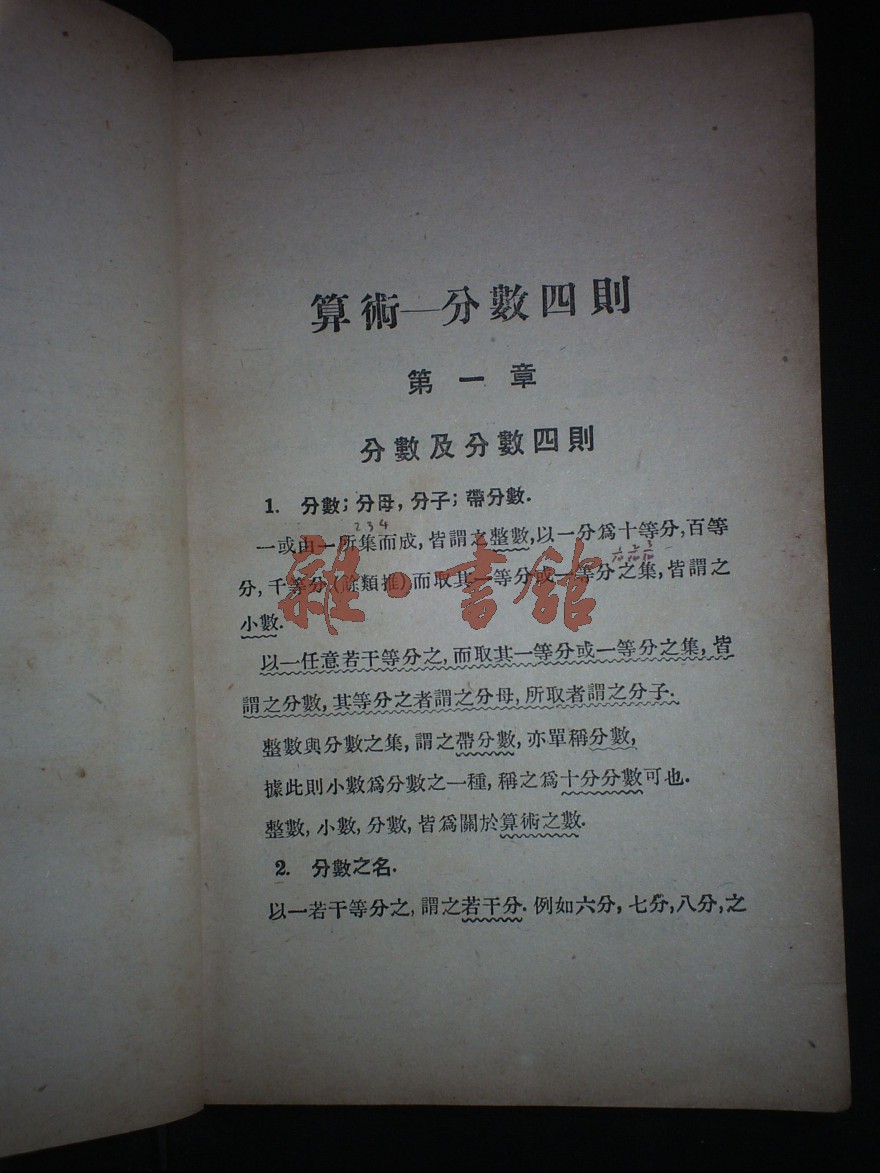 算術—分數四則
第一章
分數及分數四則
1. 分數; 分母, 分子; 帶分數.
2 3 4
一或由一所集而成, 皆謂之整數, 以一分爲十等分, 百等
分, 千等分(餘類推)而取其一等分或一等分之集, 皆謂之
小數.
以一任意若干等分之, 而取其一等分或一等分之集, 皆
謂之分數, 其等分之者謂之分母, 所取者謂之分子.
整數與分數之集, 謂之帶分數, 亦單稱分數,
據此則小數爲分數之一種, 稱之爲十分分數可也.
整數, 小數, 分數, 皆爲關於算術之數.
2. 分數之名.
以一若干等分之, 謂之若干分. 例如六分, 七分, 八分, 之
雜·書館